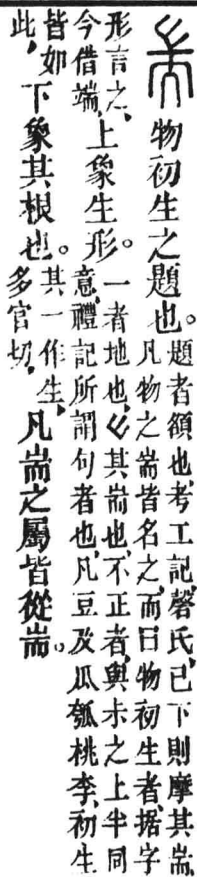 耑物初生之題也。題者額也,考工記,磬氏,已下則摩其耑,
凡物之耑皆名之,而曰物初生者,據字
形言之,
今借端,上象生形。一者地也,𡿨其耑也,不正者,與尗之上半同
意,禮記所謂句者也,凡豆及瓜瓠桃李,初生
皆如
此,下象其根也。其一作生,
多官切,凡耑之屬皆從耑。